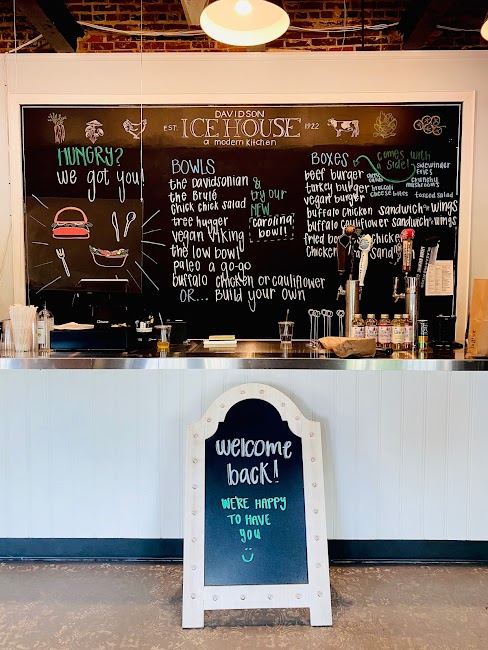 DAVIDSON
EST. ICE HOUSE 1922
a modern kitchen
HUNGRY?
we got you!
BOWLS
the davidsonian
the Brulé
chick chick salad
tree hugger
vegan viking
the low bowl
paleo a go-go
buffalo chicken or cauliflower
OR... Build your own
&
try our
NEW
"carolina
bowl!"
BOXES
beef burger
turkey burger
vegan burger
buffalo chicken sandwich or wings
buffalo cauliflower sandwich or wings
fried
chicken
comes with a side!
sidewinder fries
broccoli
cheese bites
crunchy mushrooms
tossed salad
welcome
back!
WE'RE HAPPY
TO HAVE
YOU